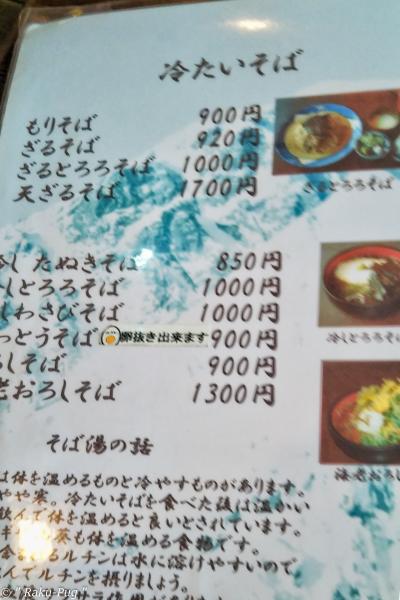 冷たいそば
もりそば 900円
ざるそば 920円
ざるとろろそば 1000円
天ざるそば 1700円
ざるとろろそば
冷し たぬきそば 850円
しとろろそば 1000円
しわさびそば 1000円
っとうそば 卵抜き出来ます 900円
ろしそば 900円
老おろしそば 1300円
冷しとろろそば
海老おろし
そば湯の話
は体を温めるものと冷やすものがあります。
やや寒。冷たいそばを食べた後は温かい
飲んで体を温めると良いとされています。
も体を温める食物です。
ルチンは水に溶けやすいので
んでルチンを摂りましょう。
© "Raku-Pug"